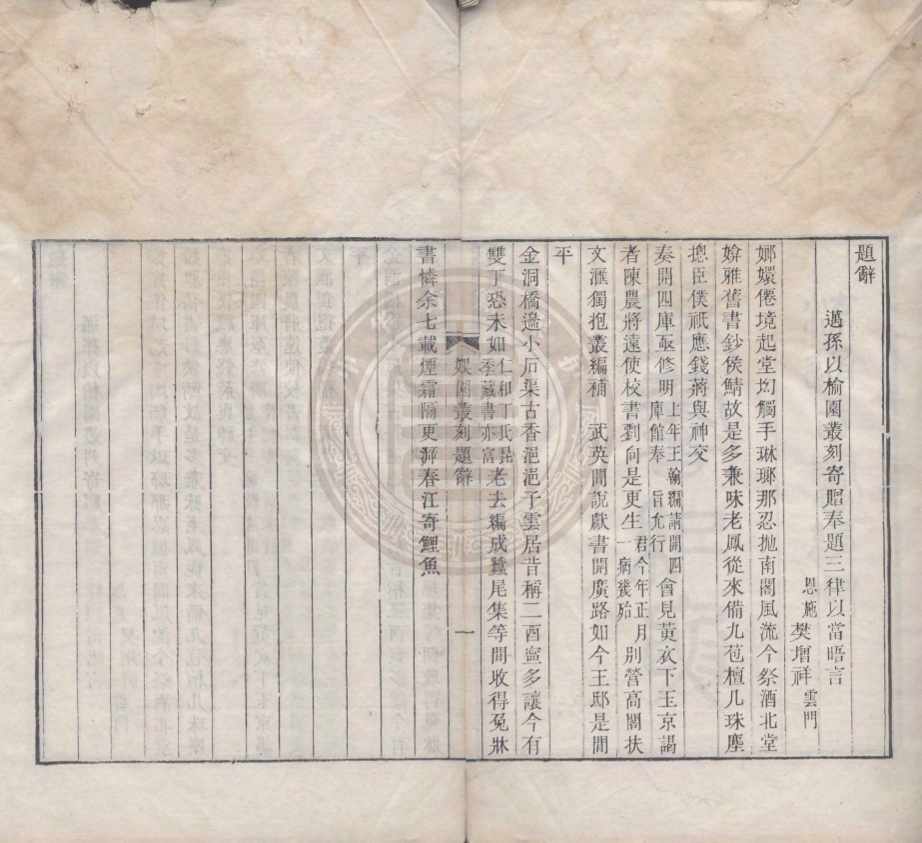 題辭
邁孫以榆園叢刻寄贈奉題三律以當晤言
恩施 樊增祥 雲門
嫏嬛僊境起堂㘭觸手琳瑯那忍拋南閣風流今祭酒北堂
雅舊書鈔侯鯖故是多兼味老鳳從來備九苞檀几珠塵
摠臣僕祇應錢蔣與神交
奏開四庫亟修明上年王翰編請開四庫館奉 旨允行會見黃衣下玉京謁
者陳農將遠使校書劉向是更生君今年正月一病幾殆別營高閣扶
文滙獨抱叢編補 武英聞說獻書開廣路如今王邸是閒
平
金洞橋邊小石渠古香浥浥子雲居昔稱二酉寧多讓今有
雙丁恐未如仁和丁氏昆季藏書亦富老去編成蠶尾集等閒收得兔牀
娛園叢刻題辭 一
書憐余七載煙霜隔更泝春江寄鯉魚